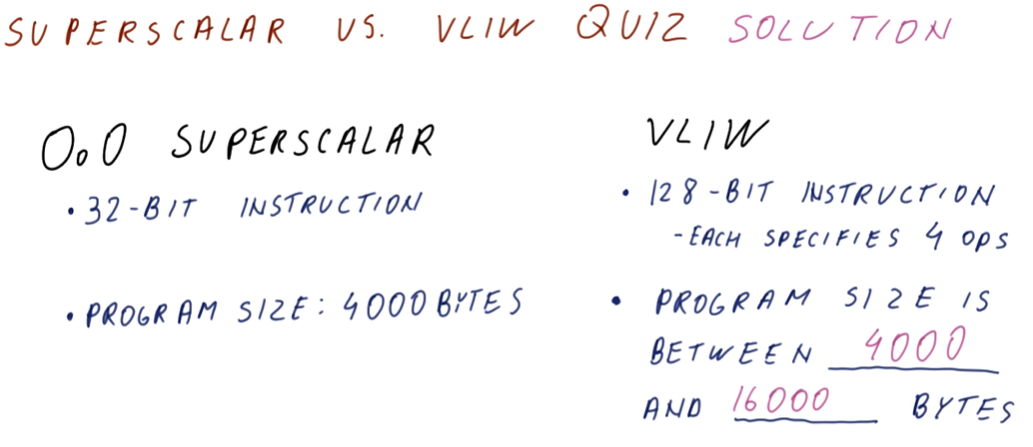 SUPERSCALAR VS. VLIW QUIZ SOLUTION
OoO SUPERSCALAR
• 32-BIT INSTRUCTION
• PROGRAM SIZE: 4000 BYTES
VLIW
• 128-BIT INSTRUCTION
- EACH SPECIFIES 4 OPS
• PROGRAM SIZE IS
BETWEEN 4000
AND 16000 BYTES